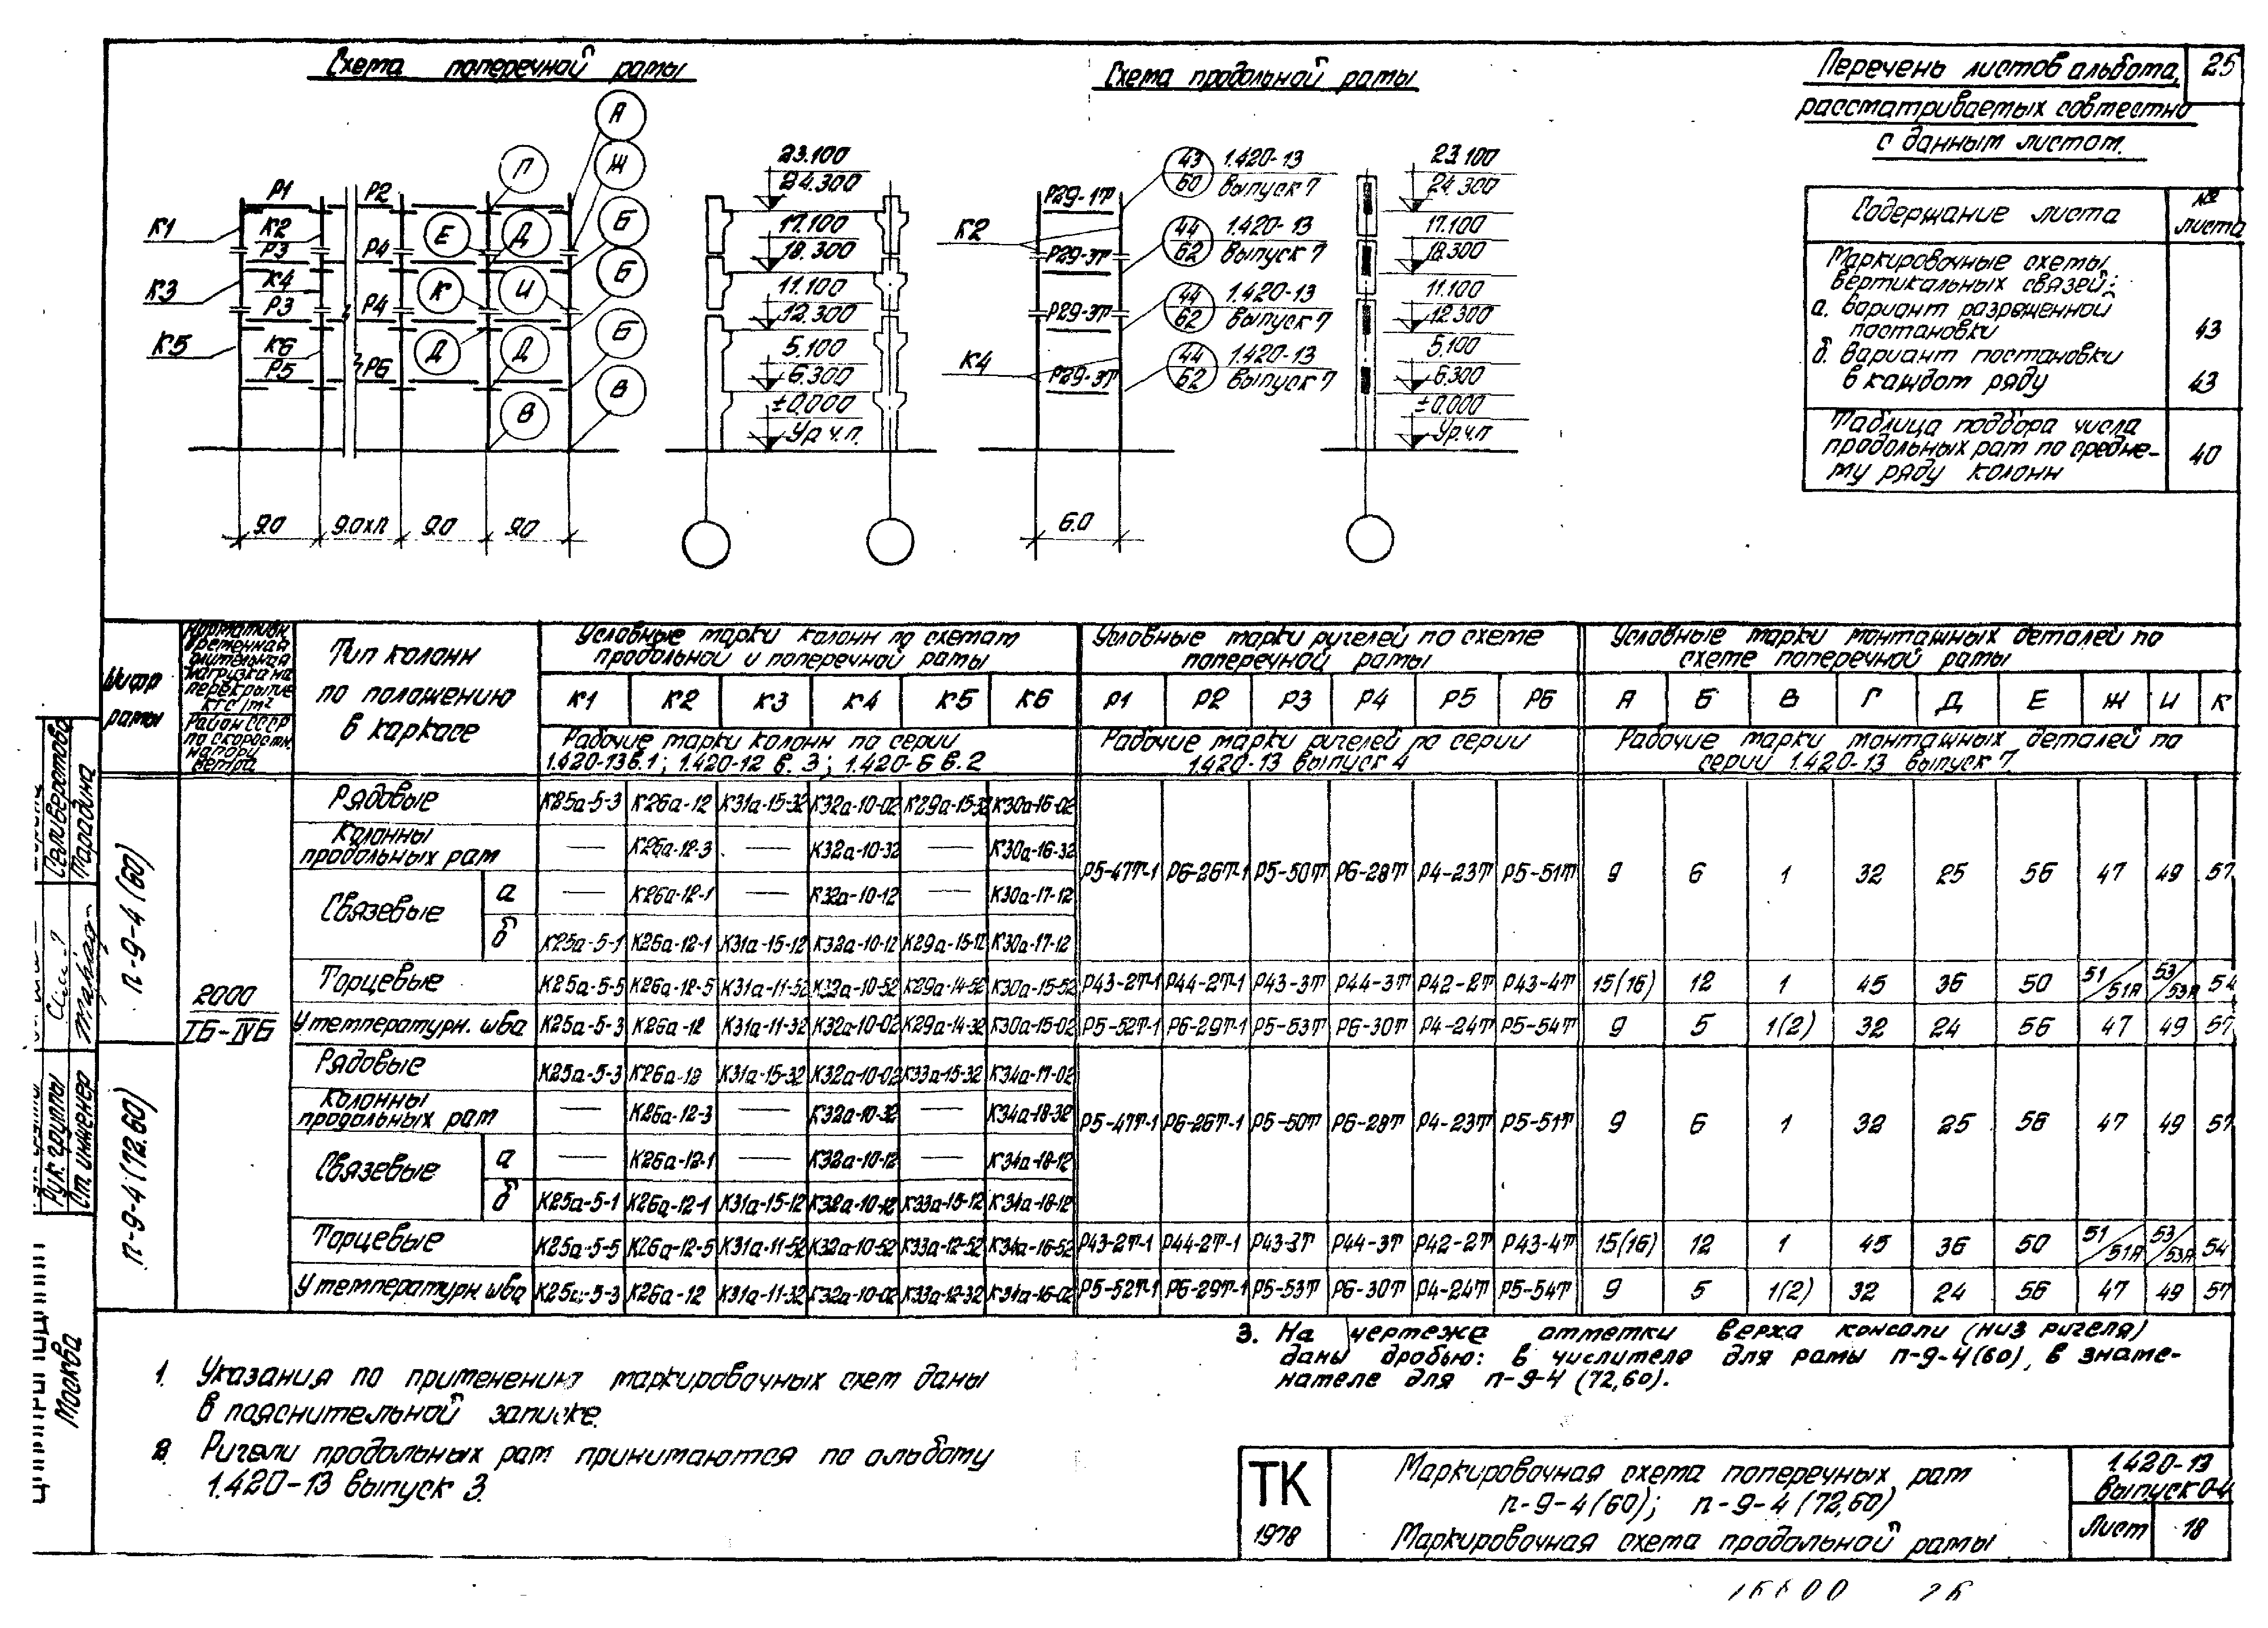 Схема поперечной рамы
Схема продольной рамы
Перечень листов альбома,
рассматриваемых совместно
с данным листом.
25
Содержание листа
№ листа
Маркировочные схемы
вертикальных связей:
а. вариант разряженной
постановки
43
б. вариант постановки
в каждом ряду
43
Таблица подбора числа
продольных рам по средне-
му ряду колонн
40
К1
К3
К5
Р1
К2
Р3
К4
Р3
К6
Р5
Р2
Р4
Р4
Р6
А
Ж
П
Е
Д
Б
К
И
Б
Д
Д
Б
В
В
9.0
9.0хп
9.0
9.0
23.100
24.300
17.100
18.300
11.100
12.300
5.100
6.300
±0.000
Ур.ч.п.
К2
К4
Р29-1т
Р29-3т
Р29-3т
Р29-3т
43
60
1.420-13
Выпуск 7
44
62
1.420-13
Выпуск 7
44
62
1.420-13
Выпуск 7
44
62
1.420-13
Выпуск 7
6.0
23.100
24.300
17.100
18.300
11.100
12.300
5.100
6.300
±0.000
Ур.ч.п
Шифр рамы
Нормативн. временная длительная нагрузка на перекрытие кгс/м²
Район СССР по скоростн. напору ветра
Тип колонн
по положению
в каркасе
Условные марки колонн по схемам
продольной и поперечной рамы
К1 К2 К3 К4 К5 К6
Рабочие марки колонн по серии
1.420-13 в.1; 1.420-12 в. 3; 1.420-6 в.2
Условные марки ригелей по схеме
поперечной рамы
Р1 Р2 Р3 Р4 Р5 Р6
Рабочие марки ригелей по серии
1.420-13 выпуск 4
Условные марки монтажных деталей по
схеме поперечной рамы
А Б В Г Д Е Ж И К
Рабочие марки монтажных деталей по
серии 1.420-13 выпуск 7
п-9-4(60)
2000
IБ-IVБ
Рядовые К25а-5-3 К26а-12 К31а-15-32 К32а-10-02 К29а-15-32 К30а-16-02
Колонны
продольных рам — К26а-12-3 — К32а-10-32 — К30а-16-32
Р5-47т-1 Р6-26т-1 Р5-50т Р6-28т Р4-23т Р5-51т 9 6 1 32 25 56 47 49 57
Связевые
а — К26а-12-1 — К32а-10-12 — К30а-17-12
б К25а-5-1 К26а-12-1 К31а-15-12 К32а-10-12 К29а-15-12 К30а-17-12
Торцевые К25а-5-5 К26а-12-5 К31а-11-52 К32а-10-52 К29а-14-52 К30а-15-52 Р43-2т-1 Р44-2т-1 Р43-3т Р44-3т Р42-2т Р43-4т 15(16) 12 1 45 36 50 51/51А 53/53А 54
У температурн. шва К25а-5-3 К26а-12 К31а-11-32 К32а-10-02 К29а-14-32 К30а-15-02 Р5-52т-1 Р6-29т-1 Р5-53т Р6-30т Р4-24т Р5-54т 9 5 1(2) 32 24 56 47 49 57
п-9-4(72.60)
Рядовые К25а-5-3 К26а-12 К31а-15-32 К32а-10-02 К33а-15-32 К34а-17-02
Колонны
продольных рам — К26а-12-3 — К32а-10-32 — К34а-18-32
Р5-47т-1 Р6-26т-1 Р5-50т Р6-28т Р4-23т Р5-51т 9 6 1 32 25 56 47 49 57
Связевые
а — К26а-12-1 — К32а-10-12 — К34а-18-12
б К25а-5-1 К26а-12-1 К31а-15-12 К32а-10-12 К33а-15-12 К34а-18-12
Торцевые К25а-5-5 К26а-12-5 К31а-11-52 К32а-10-52 К33а-12-52 К34а-16-52 Р43-2т-1 Р44-2т-1 Р43-3т Р44-3т Р42-2т Р43-4т 15(16) 12 1 45 36 50 51/51А 53/53А 54
У температурн. шва К25а-5-3 К26а-12 К31а-11-32 К32а-10-02 К33а-12-32 К34а-16-02 Р5-52т-1 Р6-29т-1 Р5-53т Р6-30т Р4-24т Р5-54т 9 5 1(2) 32 24 56 47 49 57
1. Указания по применению маркировочных схем даны
в пояснительной записке.
2. Ригели продольных рам принимаются по альбому
1.420-13 выпуск 3.
3. На чертеже отметки верха консоли (низ ригеля)
даны дробью: в числителе для рамы п-9-4(60), в знаме-
нателе для п-9-4 (72,60).
ТК
1978
Маркировочная схема поперечных рам
п-9-4(60); п-9-4(72,60)
Маркировочная схема продольной рамы
1.420-13
Выпуск 0-4
Лист 18
Селиверстова
Тарадина
Рук. группы
Ст. инженер
Москва